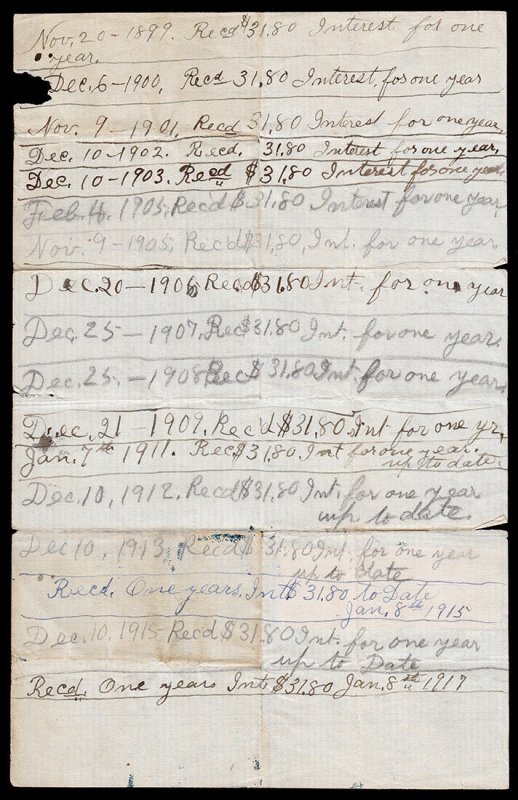 Nov. 20 - 1899. Recd $31.80 Interest for one
year.
Dec. 6 - 1900, Recd 31,80 Interest, for one year
Nov. 9 - 1901, Recd 31,80 Interest for one year,
Dec. 10 - 1902. Recd. 31,80 Interest for one year,
Dec. 10 - 1903. Recd $31.80 Interest for one year,
Feb 4, 1905, Recd $31,80 Interest for one year,
Nov. 9 - 1905, Rec'd $31,80, Int. for one year,
Dec. 20 - 1906, Recd $31.80 Int. for one year
Dec. 25 - 1907, Rec $31,80 Int. for one year.
Dec. 25. - 1908 Rec $31.80 Int. for one year.
Dec. 21 - 1909. Rec'd $31,80. Int for one yr.
Jan. 7th 1911. Rec'd $31,80. Int for one year.
up to date.
Dec. 10, 1912. Recd $31,80 Int. for one year
up to date.
Dec 10, 1913, Recd $31,80 Int. for one year
up to date
Recd. One years. Int $31,80 to Date
Jan. 8th 1915
Dec. 10, 1915 - Recd $31,80 Int. for one year
up to Date
Recd. One years Int $31,80 Jan. 8st 1917